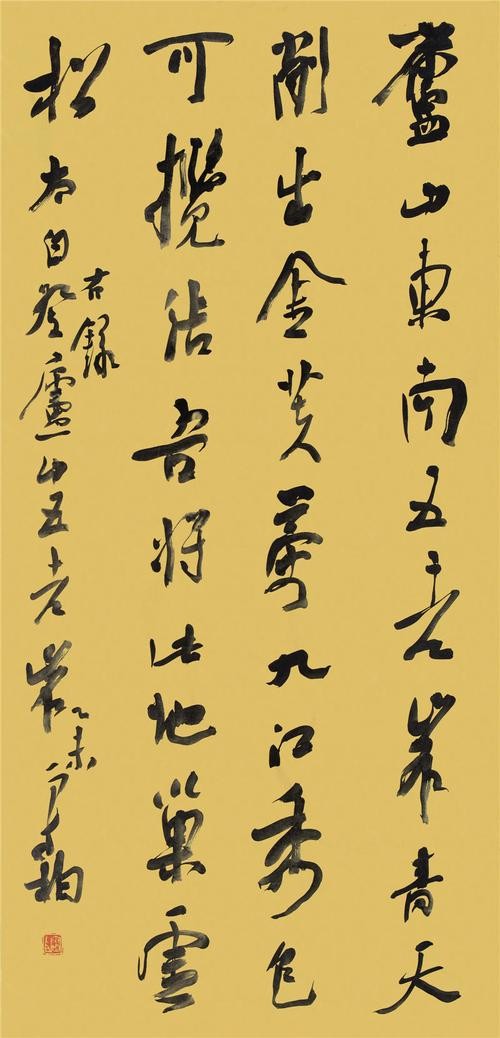 廬山東南五老峯青天
削出金芙蓉九江秀色
可攬結吾將此地巢雲
松太白登廬山五老峯乙未
右錄